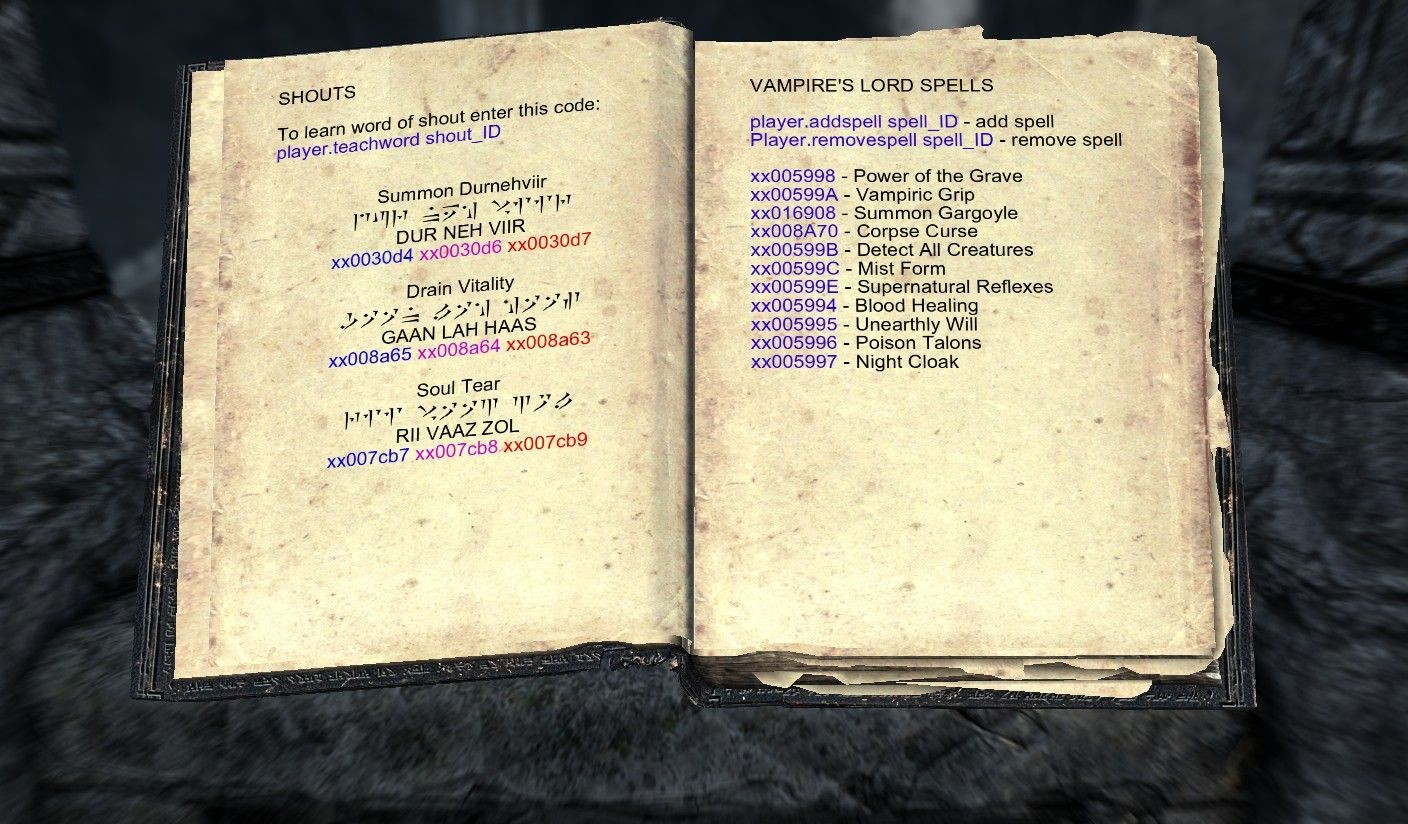 SHOUTS
To learn word of shout enter this code:
player.teachword shout_ID
Summon Durnehviir
DUR NEH VIIR
xx0030d4 xx0030d6 xx0030d7
Drain Vitality
GAAN LAH HAAS
xx008a65 xx008a64 xx008a63
Soul Tear
RII VAAZ ZOL
xx007cb7 xx007cb8 xx007cb9
VAMPIRE'S LORD SPELLS
player.addspell spell_ID - add spell
Player.removespell spell_ID - remove spell
xx005998 - Power of the Grave
xx00599A - Vampiric Grip
xx016908 - Summon Gargoyle
xx008A70 - Corpse Curse
xx00599B - Detect All Creatures
xx00599C - Mist Form
xx00599E - Supernatural Reflexes
xx005994 - Blood Healing
xx005995 - Unearthly Will
xx005996 - Poison Talons
xx005997 - Night Cloak